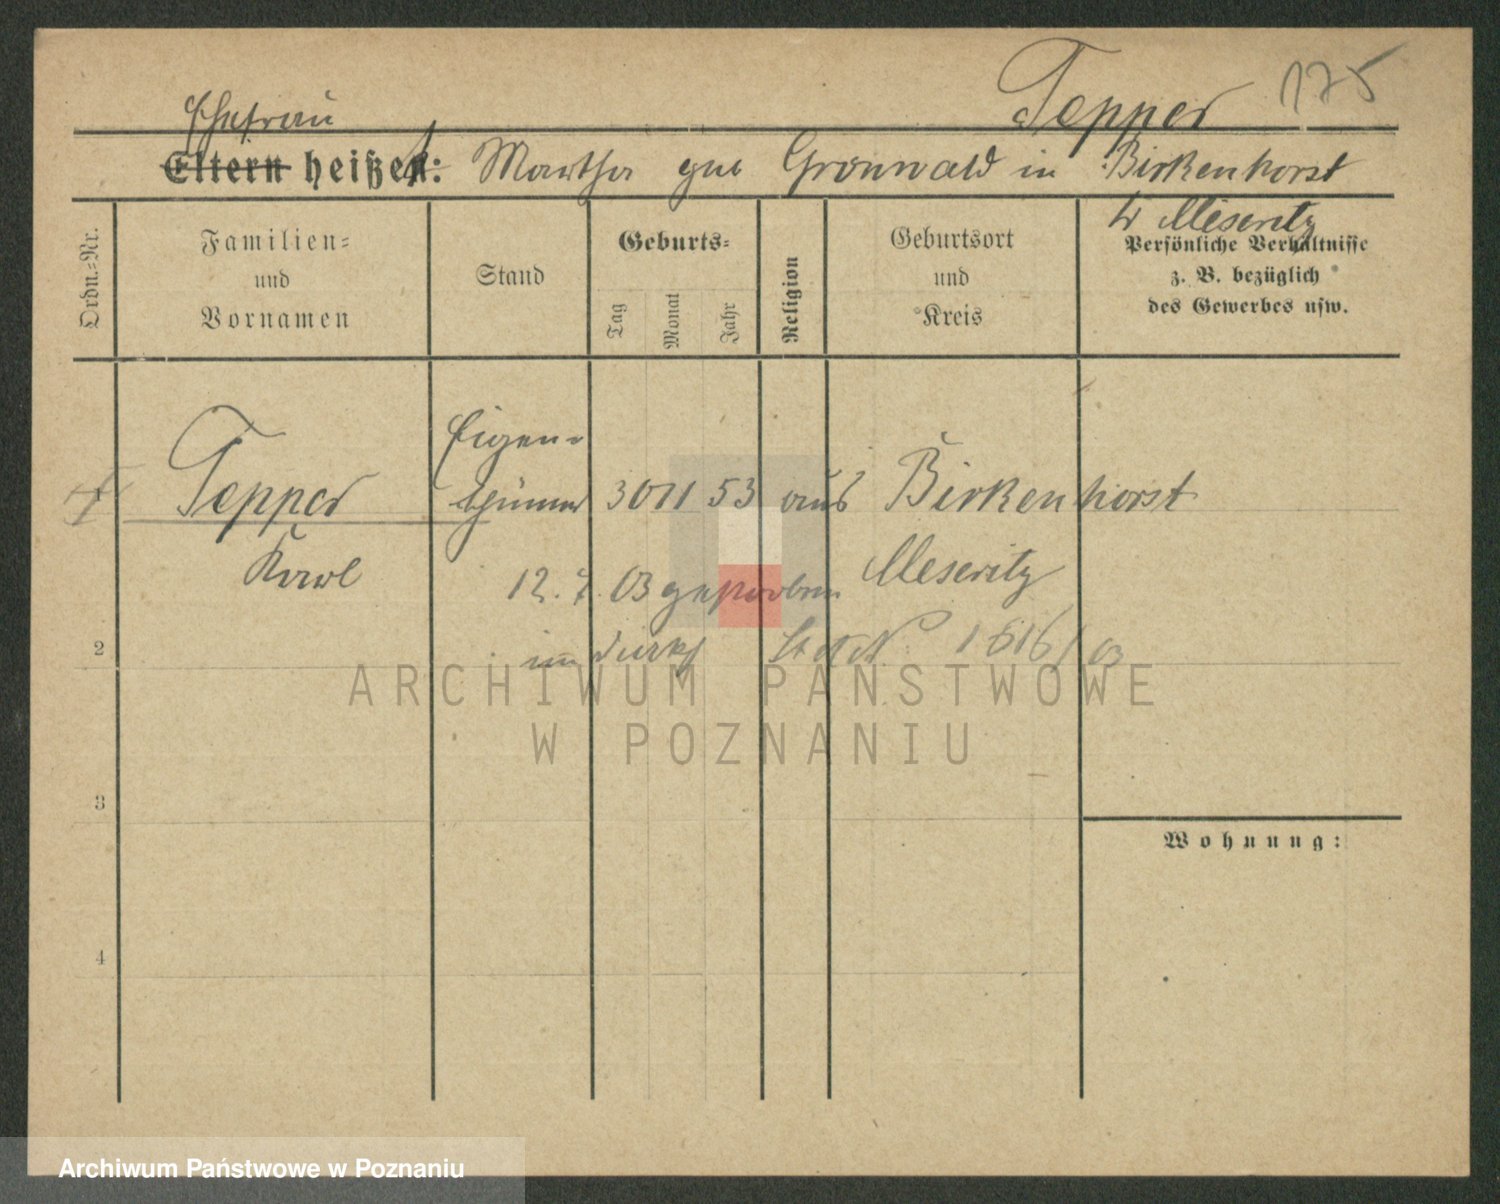 Tepper 175
Ehefrau
Eltern heißet: Martha geb Grunwald in Birkenhorst
Kr Meseritz
Ordn.-Nr.
Familien-
und
Vornamen
Stand
Geburts-
Tag
Monat
Jahr
Religion
Geburtsort
und
Kreis
Persönliche Verhältnisse
z. B. bezüglich
des Gewerbes usw.
Eigen-
Tepper thümer 30 11 53 aus Birkenhorst
Karl 12. 7. 03 gestorben Meseritz
2
im St A N 1616/03
ARCHIWUM PAŃSTWOWE
W POZNANIU
3
Wohnung:
4
Archiwum Państwowe w Poznaniu